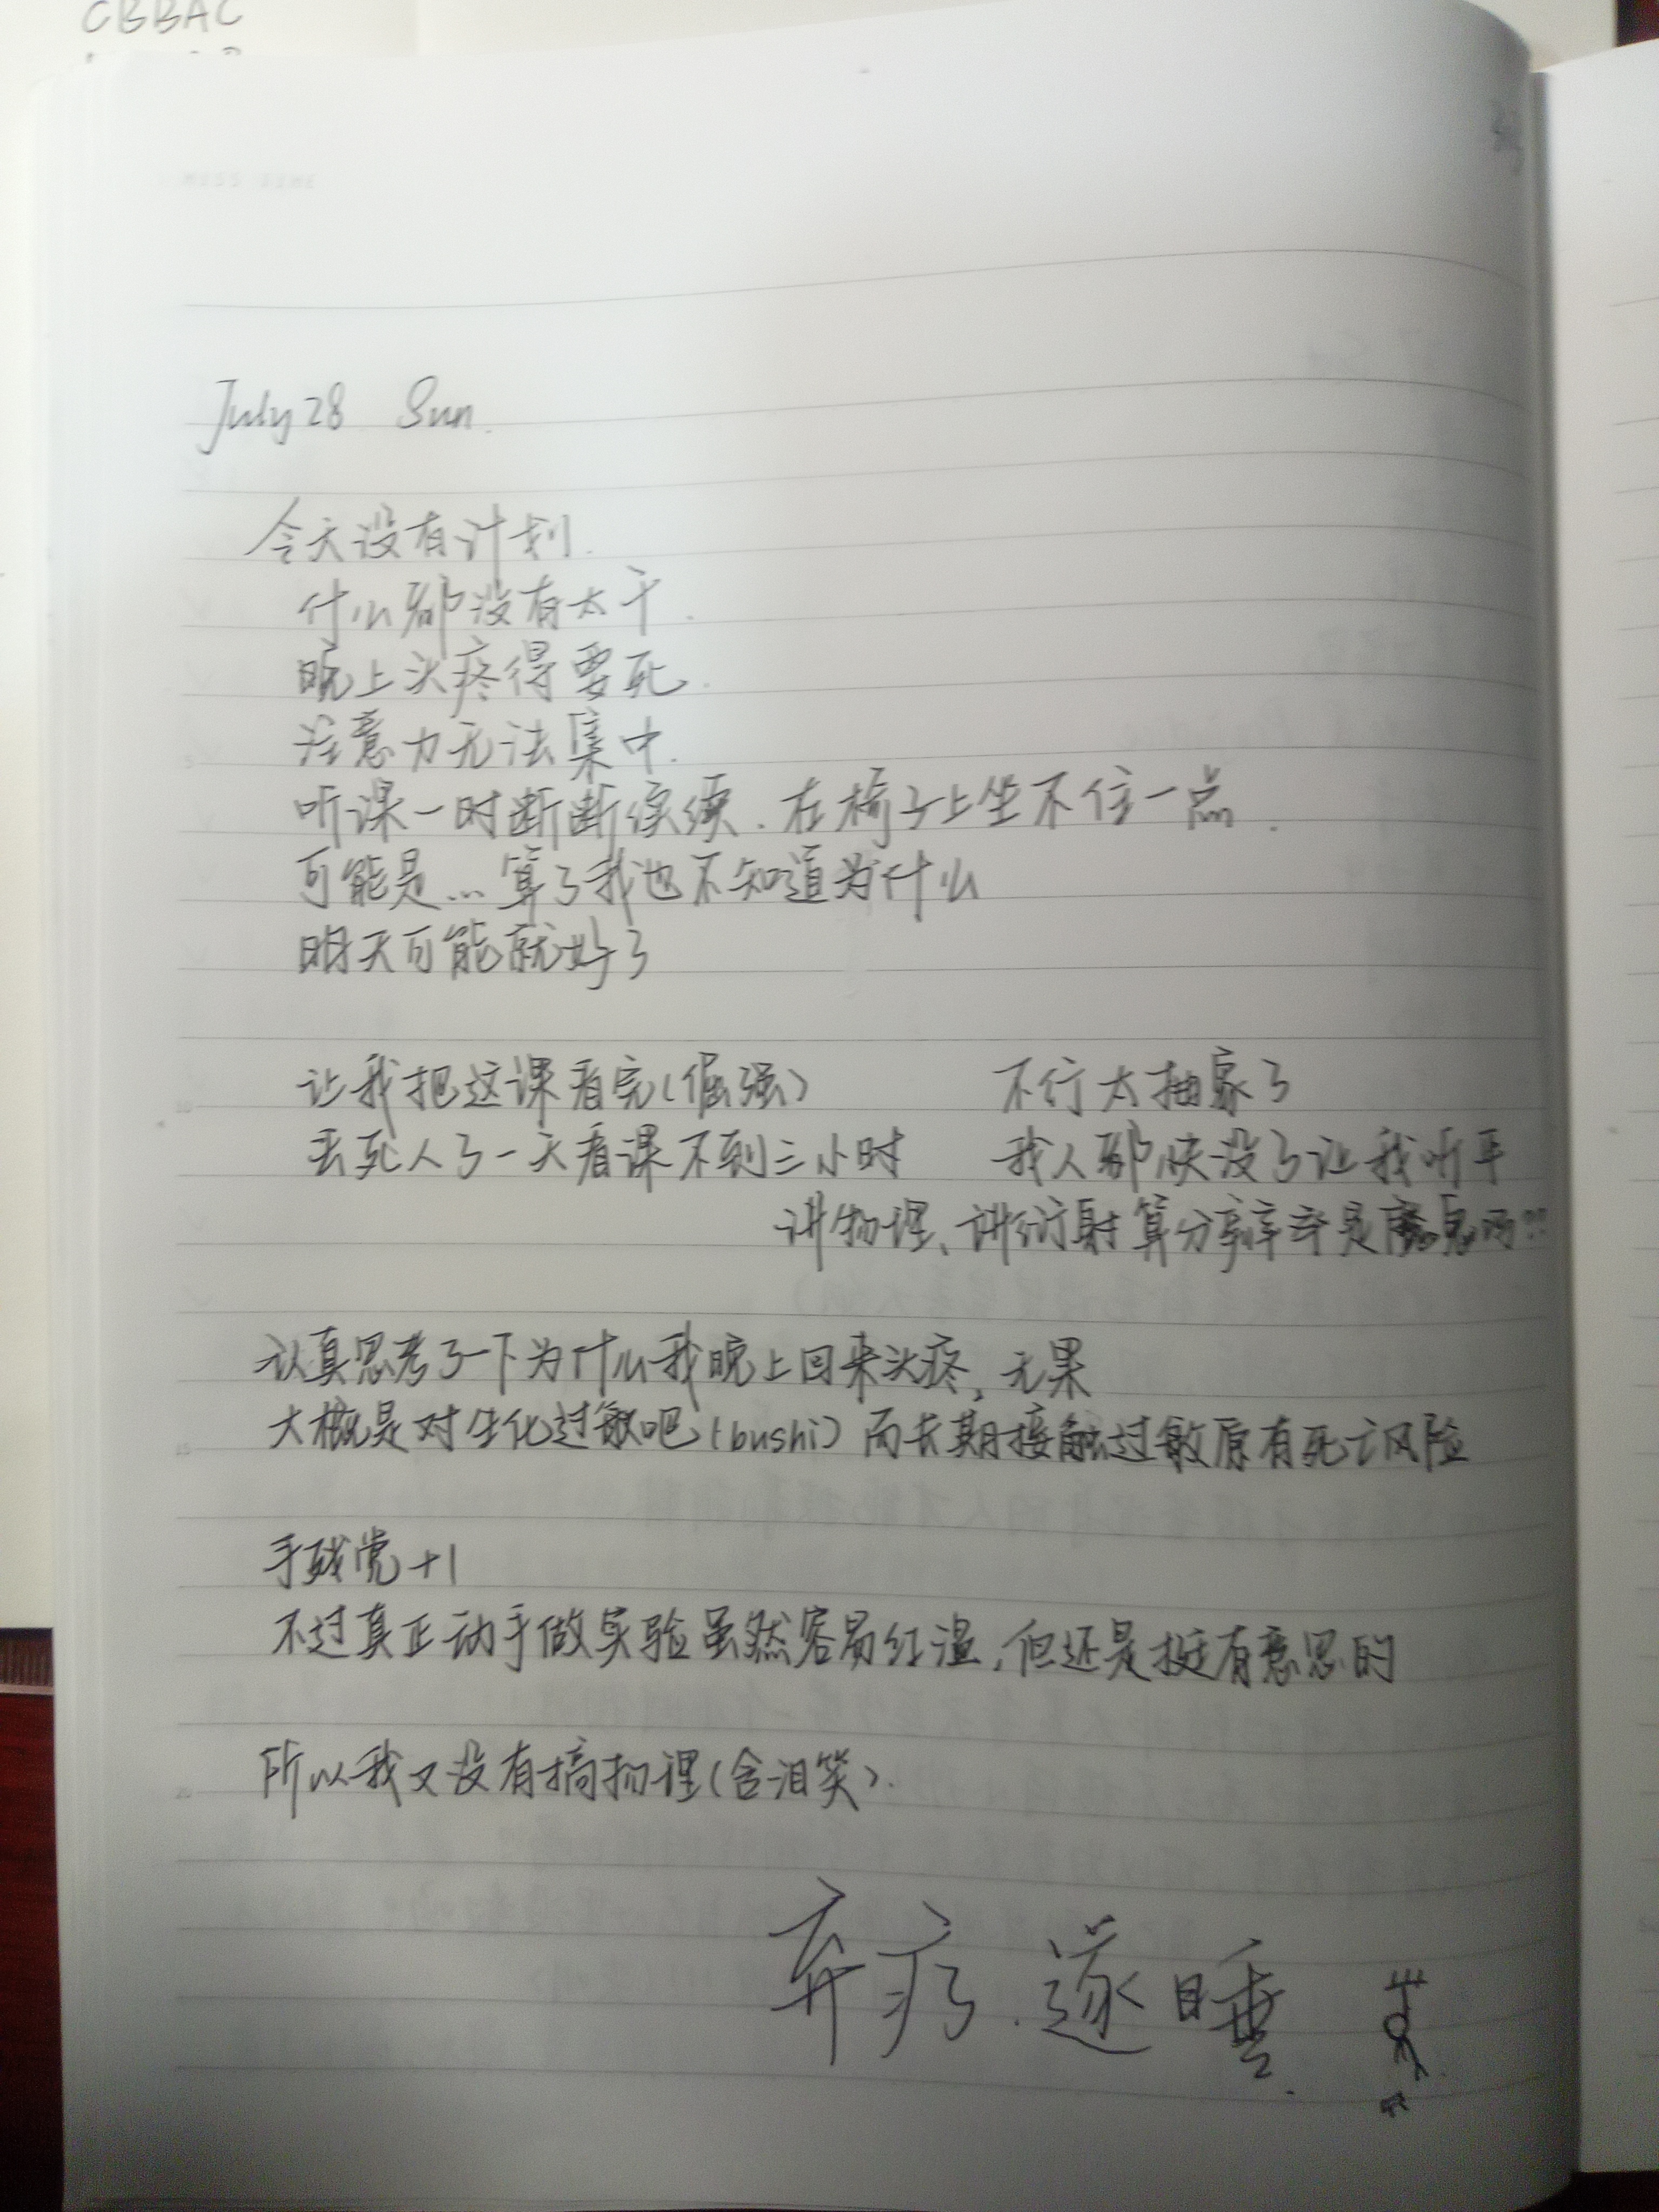 CBBAC
July 28 Sun.
今天没有计划.
什么都没有太干.
晚上头疼得要死.
注意力无法集中.
听课一时断断续续.在椅子上坐不住一点.
可能是...算了我也不知道为什么
明天可能就好了
让我把这课看完(倔强)
丢死人了一天看课不到三小时
不行太抽象了
我人都快没了让我听平
讲物理、讲衍射算分辨率是魔鬼吗??
认真思考了一下为什么我晚上回来头疼,无果
大概是对生化过敏吧(bushi)而长期接触过敏原有死亡风险
手残党+1
不过真正动手做实验虽然容易红温,但还是挺有意思的
所以我又没有搞物理(含泪笑).
弃疗.遂睡.